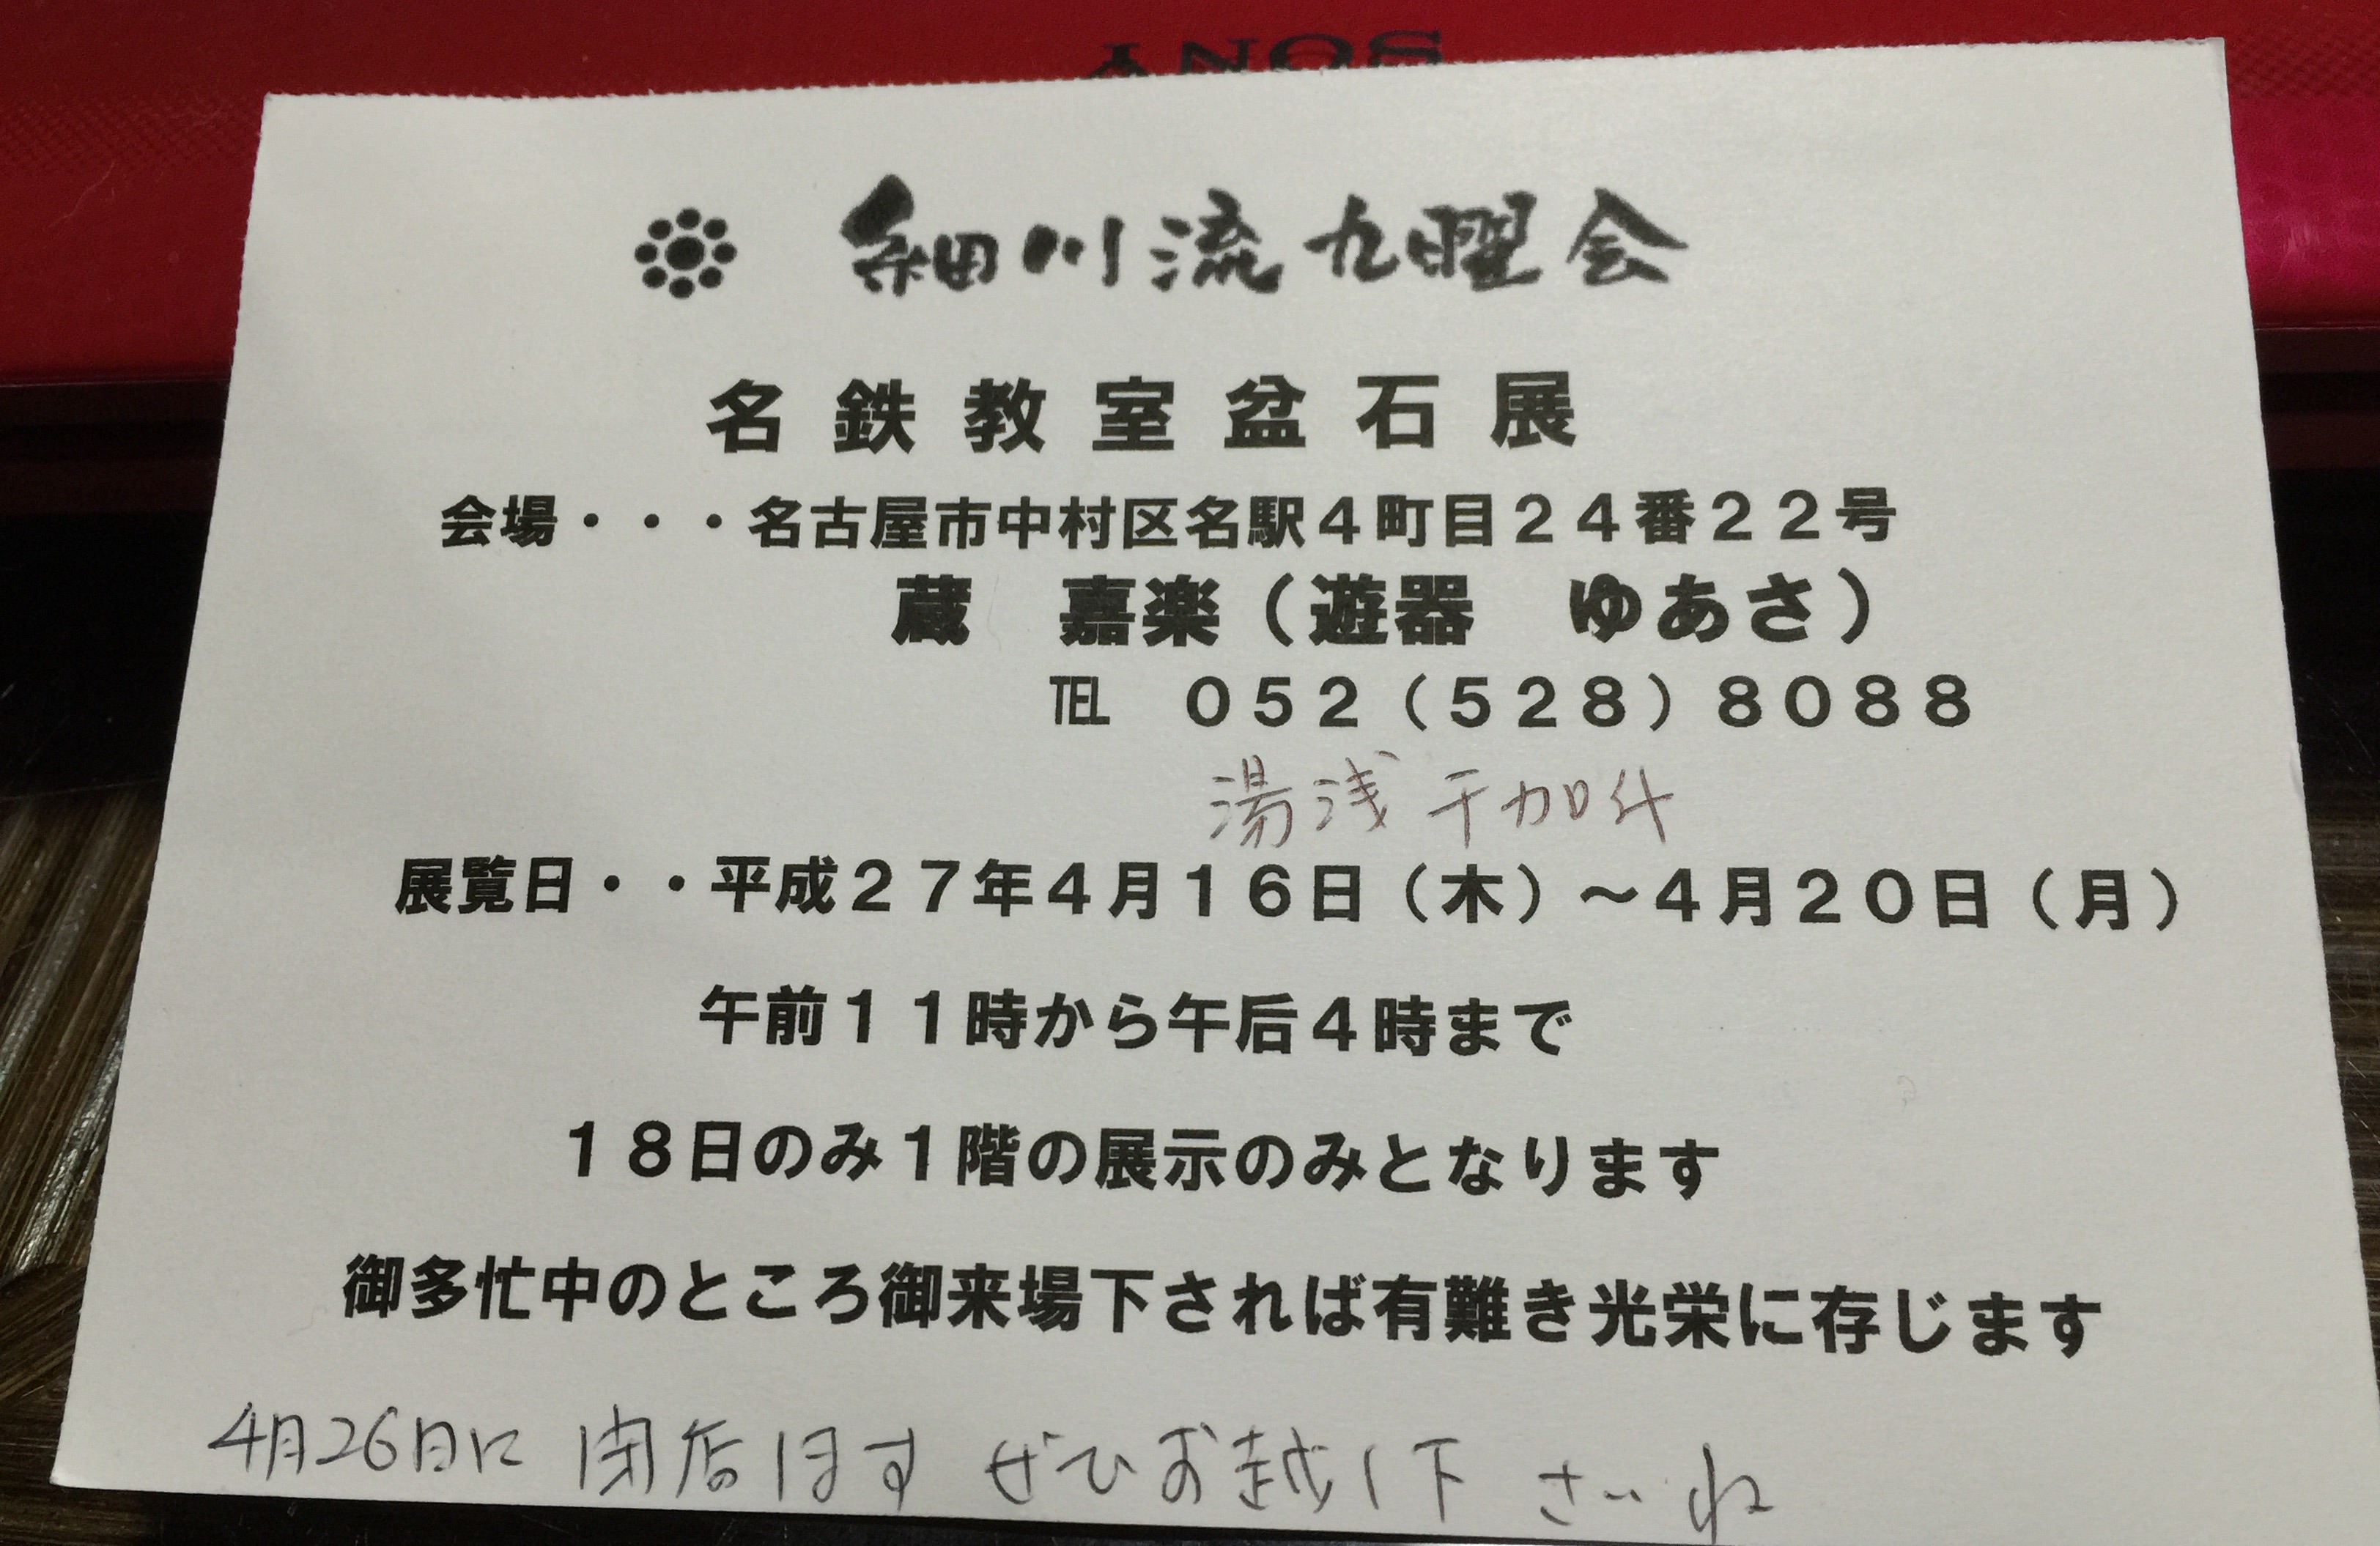 SONY
細川流九曜会
名鉄教室盆石展
会場・・・名古屋市中村区名駅4町目24番22号
蔵　嘉楽（遊器　ゆあさ）
℡　052（528）8088
湯浅千加子
展覧日・・平成27年4月16日（木）～4月20日（月）
午前11時から午后4時まで
18日のみ1階の展示のみとなります
御多忙中のところ御来場下されば有難き光栄に存じます
4月26日に 閉店します ぜひお越し下さいね